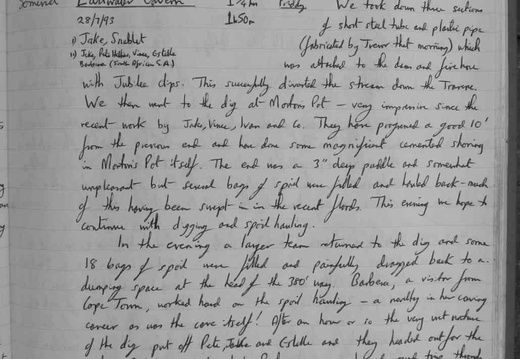 Somerset Eastwater Cavern 1¾hr Priddy We took down three sections
28/7/93 1h50m of short steel tube and plastic pipe
1) Jake, Snablet (fabricated by Trevor that morning) which
2) Jake, Pete Hellier, Vince, Estelle
Barbara (South African C.A.) was attached to the dam and fire hose
with Jubilee clips. This successfully diverted the stream down the Traverse.
We then went to the dig at Morton's Pot – very impressive since the
recent work by Jake, Vince, Ivan and Co. They have progressed a good 10'
from the previous end and have done some magnificent cemented shoring
in Morton's Pot itself. The end was a 3" deep puddle and somewhat
unpleasant but several bags of spoil were filled and hauled back – much
of this having been swept in in the recent floods. This evening we hope to
continue with digging and spoil hauling.
In the evening a larger team returned to the dig and some
18 bags of spoil were filled and painfully dragged back to a
dumping space at the head of the 380' way. Barbara, a visitor from
Cape Town, worked hard on the spoil hauling – a novelty in her caving
career as was the cave itself! After an hour or so the very wet nature
of the dig put off Pete, Jake and Estelle and they headed out for the